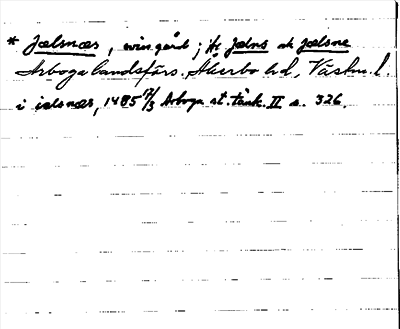 * Jælsnæs, svin gård; Hr Jælns ok Jælsne
Arboga landsförs. Åkerbo hd, Västm. l.
i ielsnæs, 1485 17/3 Arboga st. tänk. II s. 326.